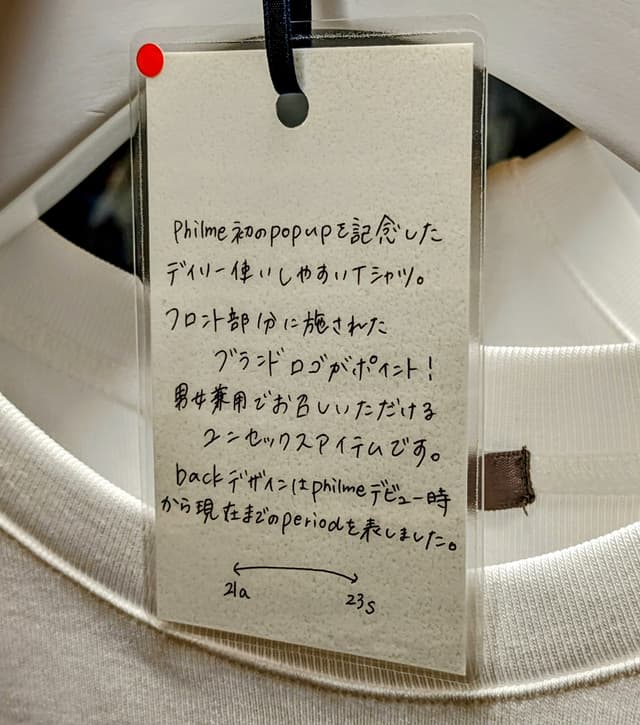 philme 初のpopupを記念した
デイリー使いしやすいTシャツ。
フロント部分に施された
ブランドロゴがポイント!
男女兼用でお召しいただける
ユンセックスアイテムです。
backデザインはphilmeデビュー時
から現在までのperiodを表しました。
21a
23s